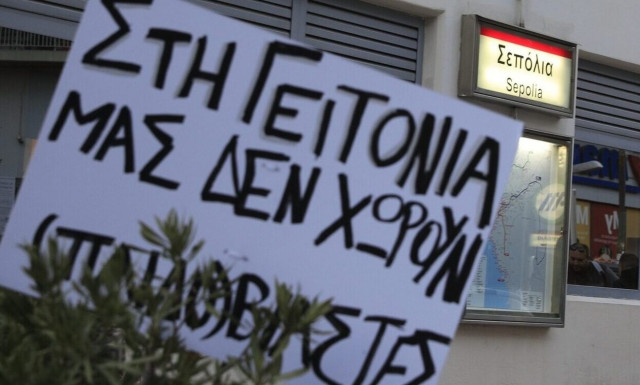 ΣΤΗ ΓΕΙΤΟΝΙΑ
ΜΑΣ ΔΕΝ ΧΩΡΟΥΝ
(ΠΑΙΔΟ)ΒΙΑΣΤΕΣ
Σεπόλια
Sepolia